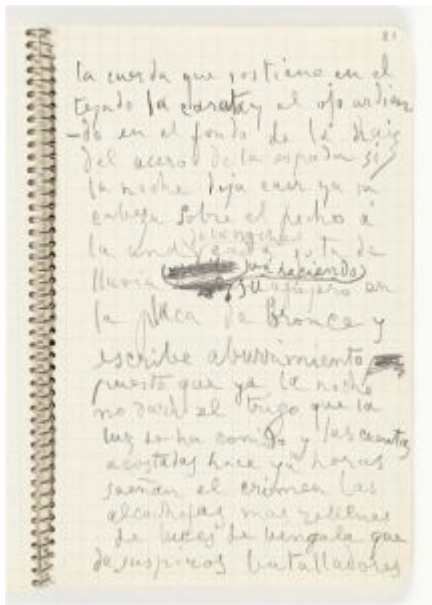 21
la cuerda que sostiene en el
tejado la careta y al ojo ardien
-do en el fondo de la
del acero de la espada si
la noche deja caer ya su
cabeza sobre el pecho a
la gota de
lluvia va haciendo
su agujero en
la placa de Bronce y
escribe aburrimiento
puesto que ya la noche
no dará el trigo que la
luz se ha comido y las cuentas
acostadas hace ya horas
sueñan el crimen las
alcachofas mas rellenas
de luces de vengala que
de suspiros batalladores